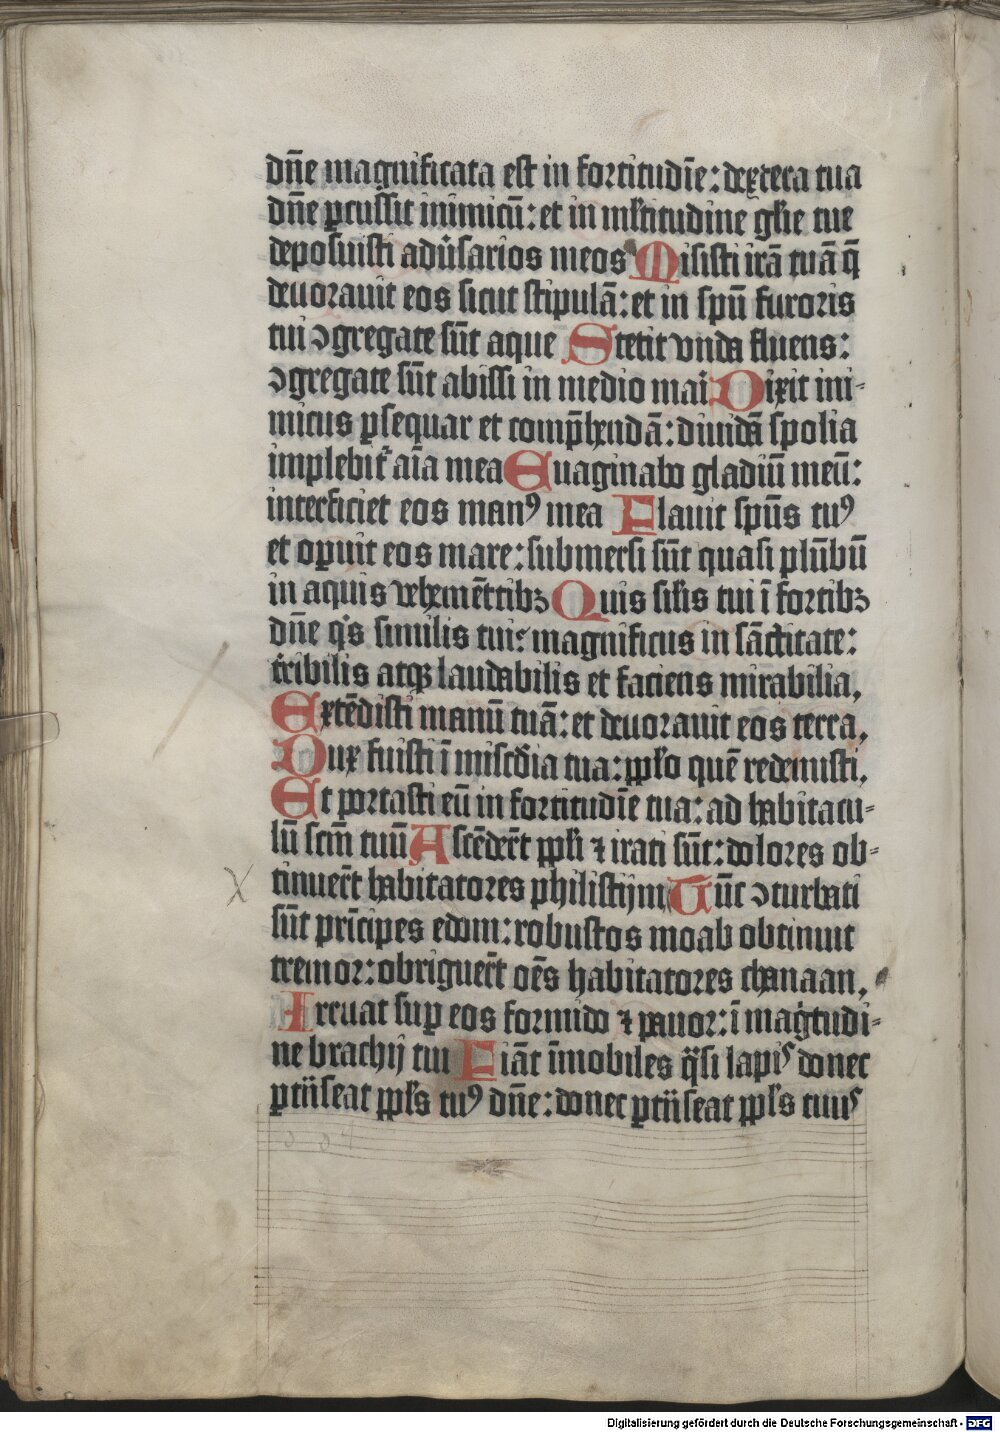 dn̄e magnificata est in fortitudīe: dextera tua
dn̄e ꝑcussit inimicū: et in mltitudine glīe tue
deposuisti adūsarios meos Misisti irā tuā q̄
deuorauit eos sicut stipulā: et in spū furoris
tui ↄgregate sūt aque Stetit vnda fluens:
ↄgregate sūt abissi in medio mari Dixit ini-
micus ꝑsequar et comp̄hendā: diuidā spolia
implebit᷑ aīa mea Euaginabo gladiū meū:
interficiet eos manꝰ mea Flauit spūs tuꝰ
et oꝑuit eos mare: submersi sūt quasi plūbū
in aquis vehemēttibꝫ Quis silis tui ī fortibꝫ
dn̄e qis similis tui: magnificus in sāctitate:
tribilis atqꝫ laudabilis et faciens mirabilia,
Extēdisti manū tuā: et deuorauit eos terra,
Dux fuisti ī miscdīa tua: ppło quē redemisti,
Et portasti eū in fortitudīe tua: ad habitacu-
lū scm̄ tuū Ascēder̄t ppłi ⁊ irati sūt: dolores ob-
tinuer̄t habitatores philistijm Tūc ↄturbati
sūt prīcipes edom: robustos moab obtinuit
tremor: obriguer̄t oēs habitatores chanaan,
Irruat suꝑ eos formido ⁊ pauor: ī magitudi-
ne brachij tui Fiāt īmobiles q̈si lapis donec
ꝑtn̈seat ppłs tuꝰ dn̄e: donec ꝑtn̈seat ppłs tuus
Digitalisierung gefördert durch die Deutsche Forschungsgemeinschaft - DFG